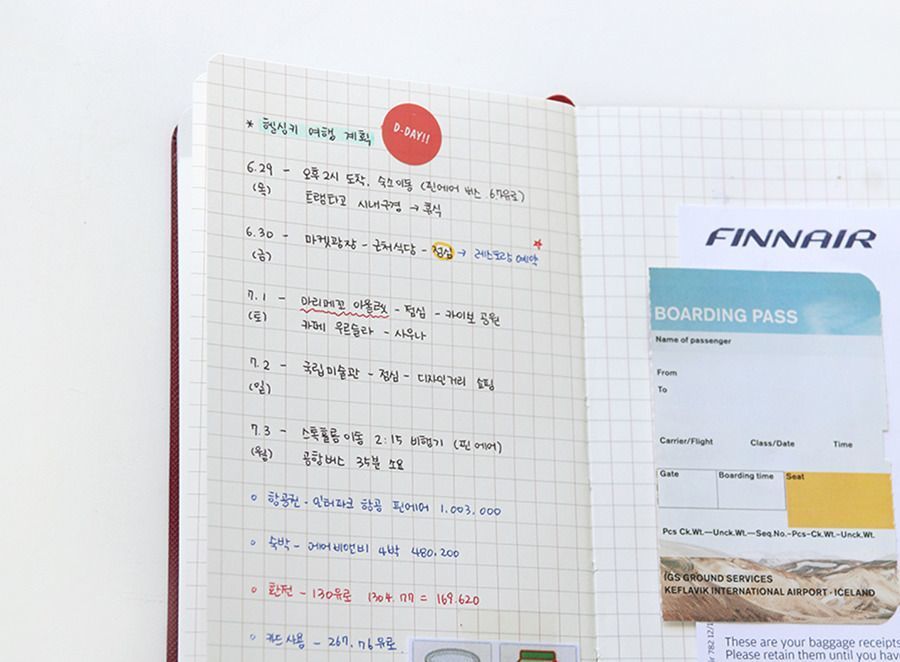 * 헬싱키 여행 계획
D-DAY!!
6.29 - 오후 2시 도착, 숙소이동 (핀에어 버스 6.7유로)
(목) 트램타고 시내구경 → 휴식
6.30 - 마켓광장 - 근처식당 - 점심 → 레스토랑 예약
(금)
7.1 - 마리메꼬 아울렛 - 점심 - 카이보 공원
(토) 카페 우르슬라 - 사우나
7.2 - 국립미술관 - 점심 - 디자인거리 쇼핑
(일)
7.3 - 스톡홀름 이동 2:15 비행기 (핀에어)
(월) 공항버스 35분 소요
○ 항공권 - 인터파크 항공 핀에어 1.003.000
○ 숙박 - 에어비앤비 4박 480.200
○ 환전 - 130유로 1304.77 = 169.620
○ 카드사용 - 267.76유로
FINNAIR
BOARDING PASS
Name of passenger
From
To
Carrier/Flight Class/Date Time
Gate Boarding time Seat
Pcs Ck.Wt.—Unck.Wt.—Seq.No.-Pcs-Ck.Wt.-Unck.Wt.
IGS GROUND SERVICES
KEFLAVIK INTERNATIONAL AIRPORT · ICELAND
782 12/1
These are your baggage receipts
Please retain them until you have